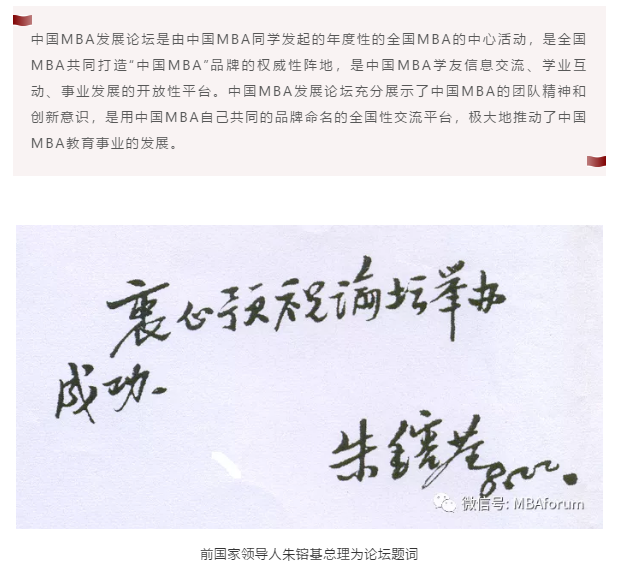 中国MBA发展论坛是由中国MBA同学发起的年度性的全国MBA的中心活动，是全国
MBA共同打造“中国MBA”品牌的权威性阵地，是中国MBA学友信息交流、学业互
动、事业发展的开放性平台。中国MBA发展论坛充分展示了中国MBA的团队精神和
创新意识，是用中国MBA自己共同的品牌命名的全国性交流平台，极大地推动了中国
MBA教育事业的发展。
衷心预祝论坛举办
成功.
朱镕基
微信号: MBAforum
前国家领导人朱镕基总理为论坛题词